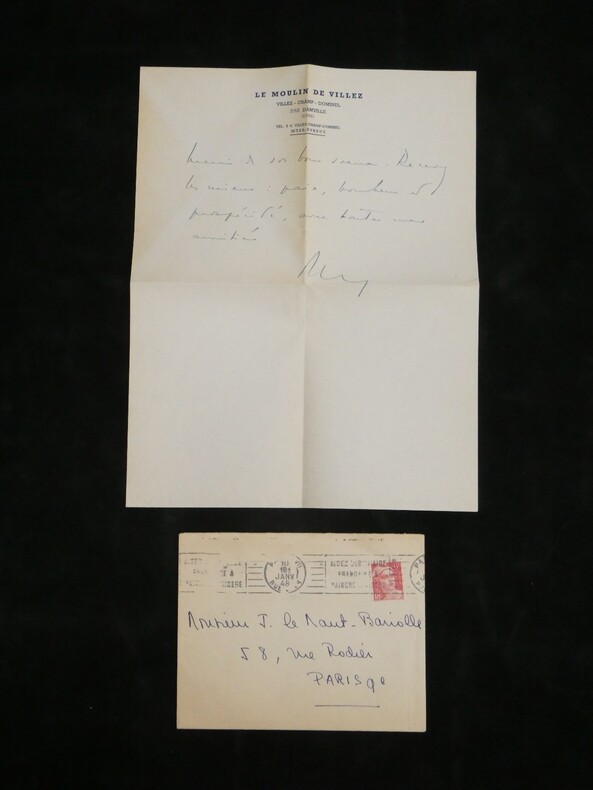 LE MOULIN DE VILLEZ
VILLEZ - CHAMP - DOMINEL
PAR DAMVILLE
(EURE)
TÉL. VILLEZ-CHAMP-DOMINEL
INTER-EVREUX
Merci de vos bons vœux. Recevez
les miens : paix, bonheur et
prospérité, avec toutes mes
amitiés
10
JANV
48
RUE
AIDEZ
VAINCRE
PA
Monsieur J. le Maut-Bariolle
58, rue Rodier
PARIS 9e